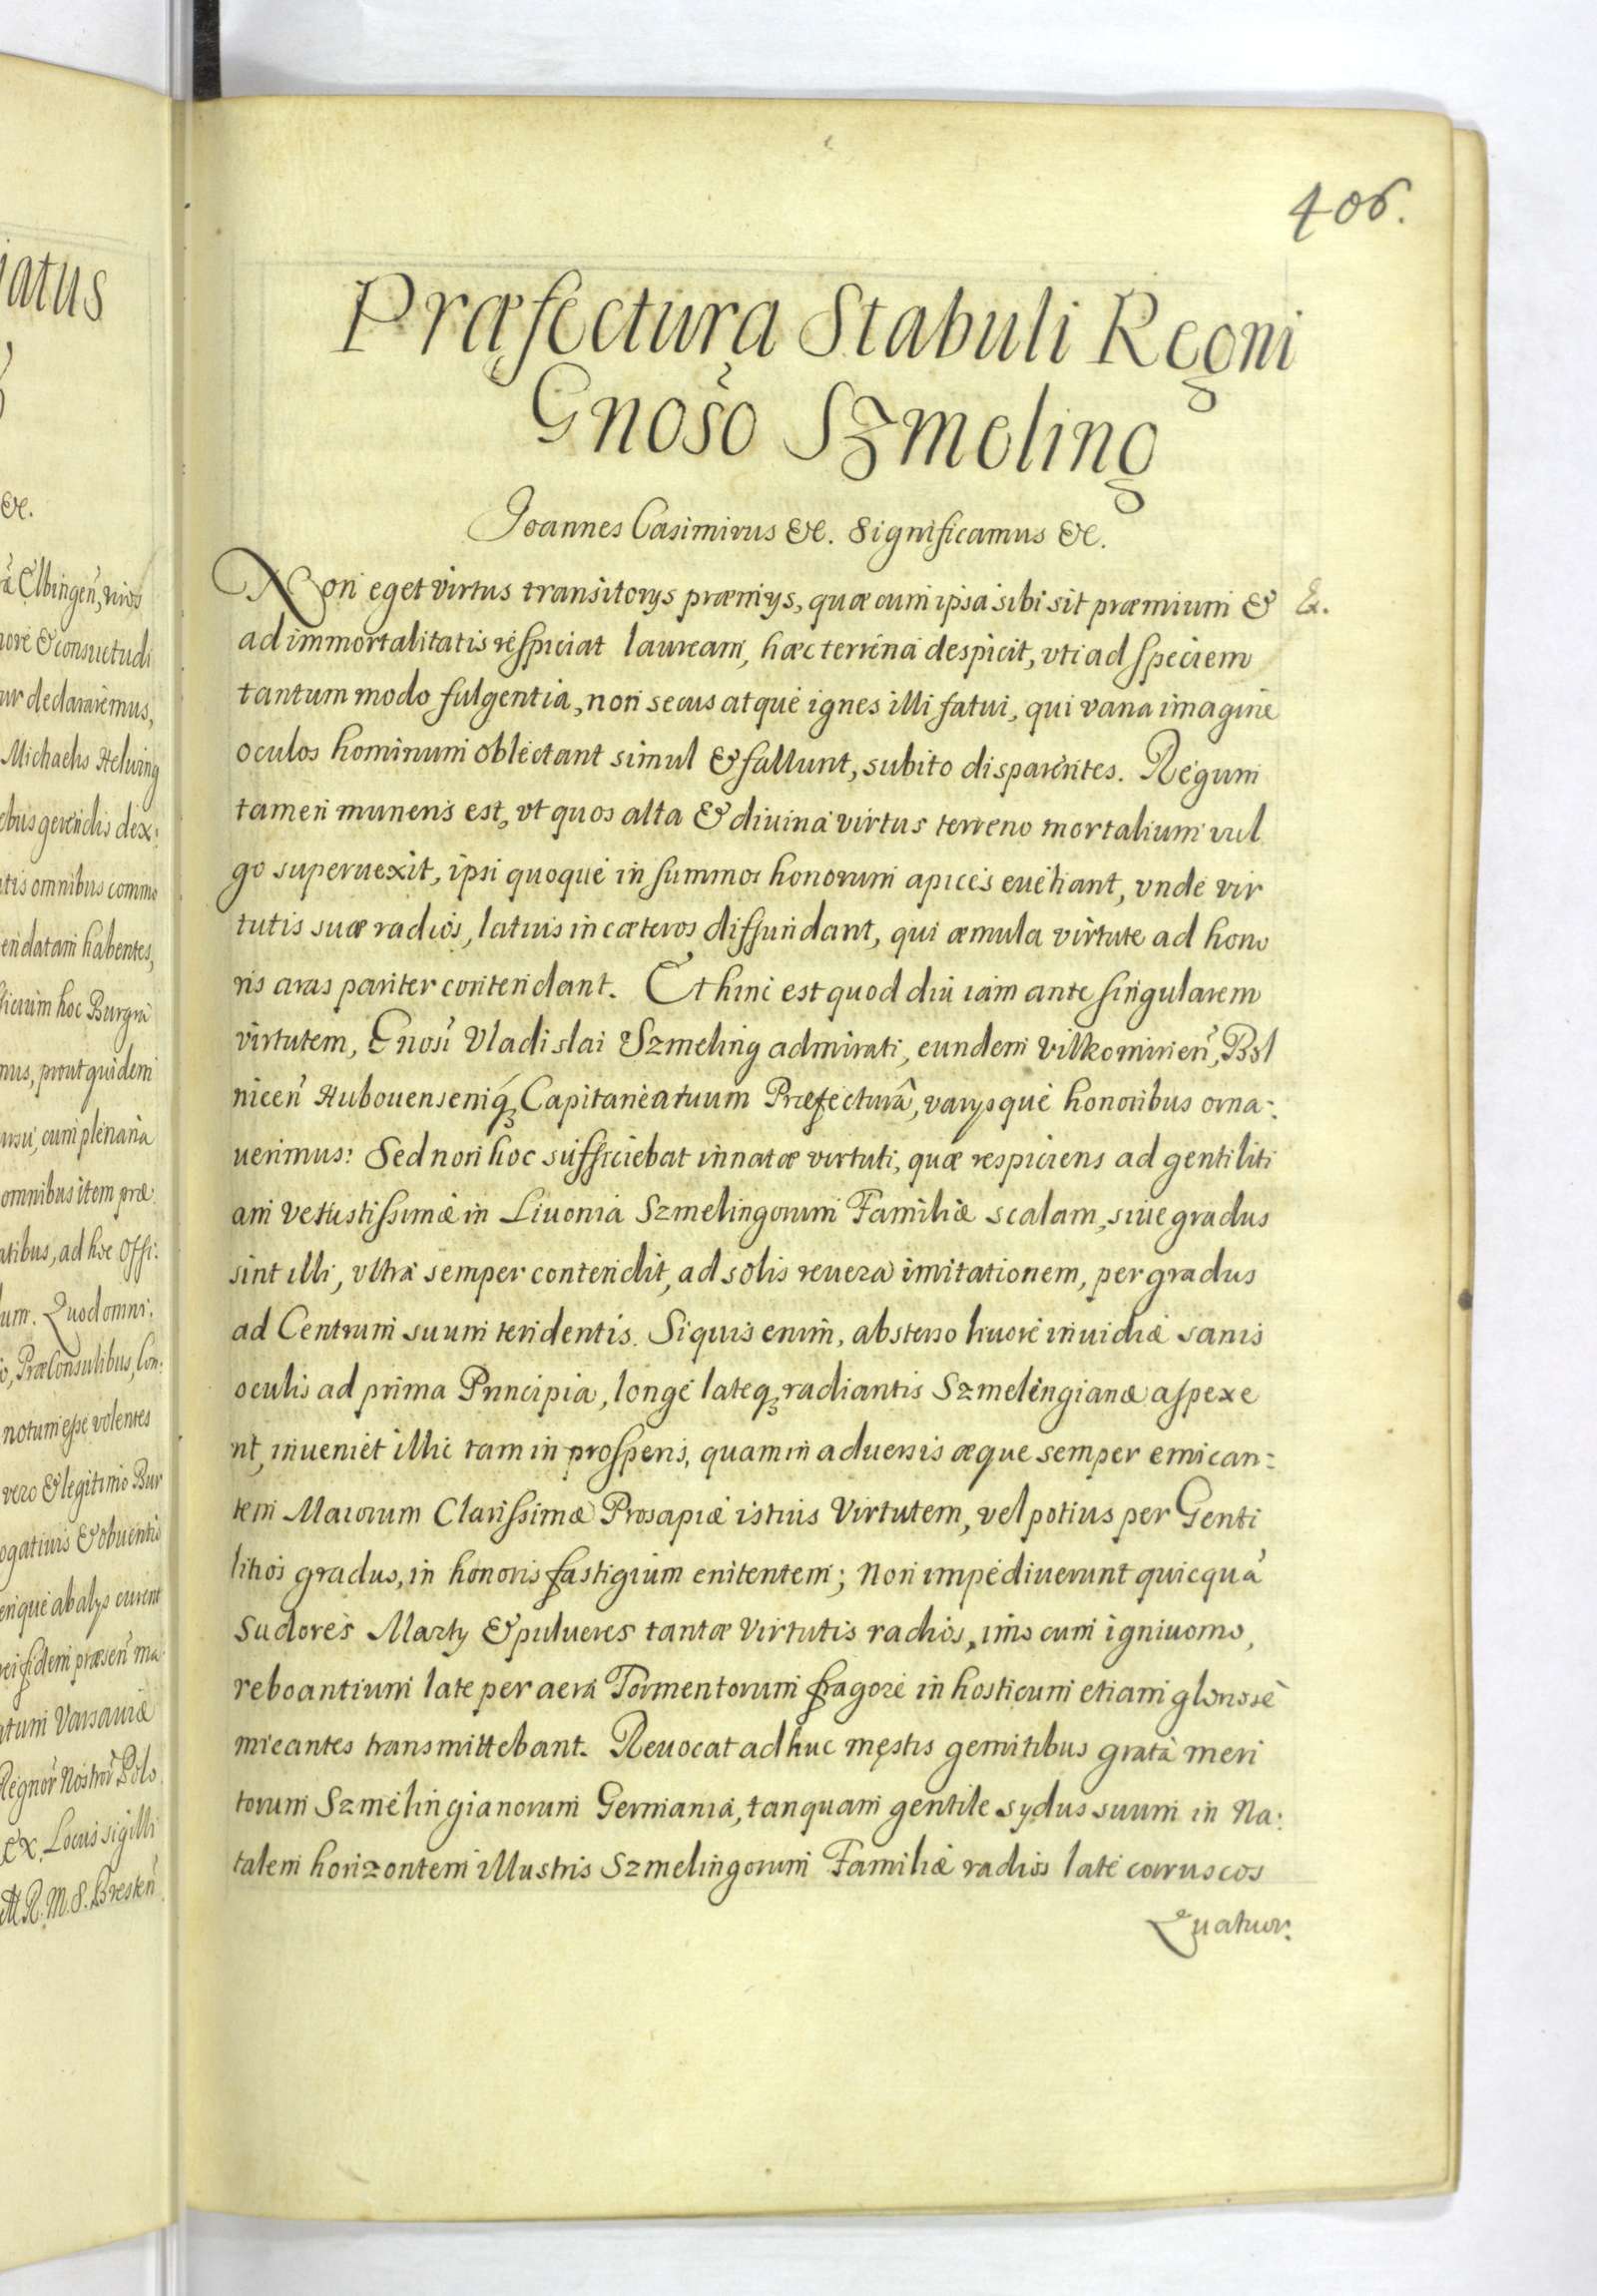 iatus
&c.
ã Elbingen̄, viros
more & consuetudi
ur declararemus,
Michaelis Helwing
rebus gerendis dex:
atis omnibus commo
endatam habentes,
ficium hoc Burgra
mus, prout quidem
ursu, cum plenaria
omnibus item præ
atibus, ad hoc Offi:
um. Quod omni:
o, PræConsulibus, Con:
notum esse volentes
vero & legitimo Bur
ogativis & obuentio
enque ab alys curent
rei fidem præsen̄ ma
atum Varsauiæ
Regnor̄ Nostror̄ Polo
ex. Locus sigilli
R. M. S. Bresten̄
406.
Præfectura Stabuli Regni
Gnoso Szmeling
Joannes Casimirus &c. Significamus &c.
Non eget virtus transitorys præmys, quæ cum ipsa sibi sit præmium &
Ex.
ad immortalitatis respiciat lauream, hæc terrena despicit, vti ad speciem
tantum modo fulgentia, non secus atque ignes illi fatui, qui vana imagine
oculos hominum oblectant simul & fallunt, subito disparentes. Regum
tamen muneris est, vt quos alta & diuina virtus terreno mortalium vul
go superuexit, ipsi quoque in summos honorum apices euehant, vnde vir
tutis suæ radios, latius in cæteros diffundant, qui æmula virtute ad hono
ris aras pariter contendant. Et hinc est quod diu iam ante singularem
virtutem, Gnosi Vladislai Szmeling admirati, eundem Vilkomirien̄, Bol
nicen̄ Hubouensemq́ꝫ Capitaneatuum Præfecturâ, varysque honoribus orna:
uerimus: Sed non hoc sufficiebat innatæ virtuti, quæ respiciens ad gentiliti
am vetustissimæ in Liuonia Szmelingorum Familiæ scalam, siue gradus
sint illi, vltra semper contendit, ad solis reuera imitationem, per gradus
ad Centrum suum tendentis. Siquis enim, absterso liuore inuidiæ sanis
oculis ad prima Principia, longe lateqꝫ radiantis Szmelingianæ aspexe
rit, inueniet illic tam in prosperis, quam in aduersis æque semper emican:
tem Maiorum Clarissimæ Prosapiæ istius Virtutem, vel potius per Genti
litios gradus, in honoris fastigium enitentem; Non impediuerunt quicquã
Sudores Marty & pulueres tantæ Virtutis radios, imo cum igniuomo,
reboantium late per aera Tormentorum fragore in hosticum etiam gloriose
micantes transmittebant. Reuocat adhuc męstis gemitibus grata meri
torum Szmelingianorum Germania, tanquam gentile sydus suum in Na:
talem horizontem illustris Szmelingorum Familiæ radios late coruscos
Quatuor: